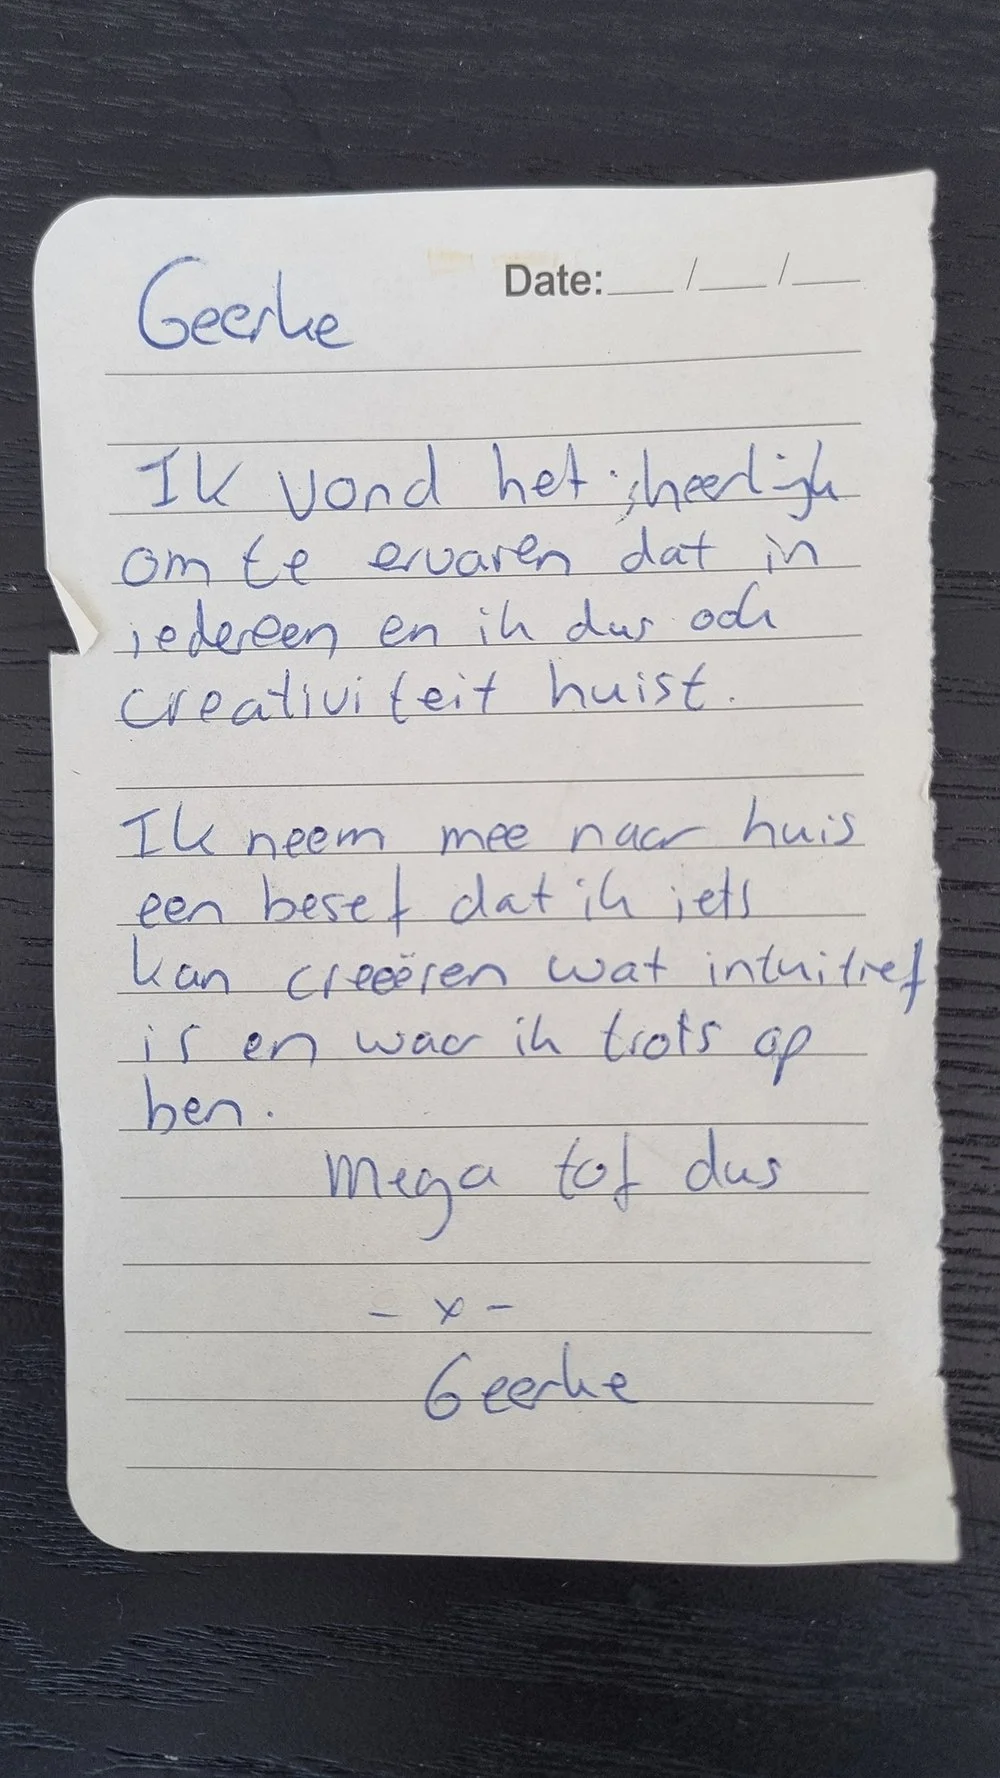 Date: __/__/__
Geerke
Ik vond het heerlijk
om te ervaren dat in
iedereen en ik dus ook
creativiteit huist.
Ik neem mee naar huis
een besef dat ik iets
kan creeëren wat intuitief
is en waar ik trots op
ben.
Mega tof dus
- x -
Geerke